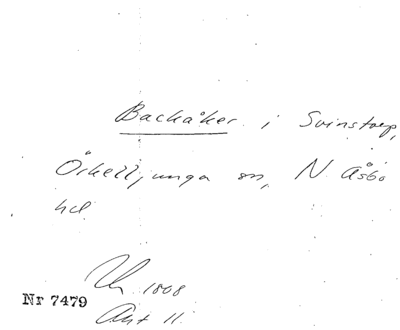 Backåker i Svinstorp,
Örkelljunga sn, N Åsbo
hd
1808
Nr 7479
Akt 11